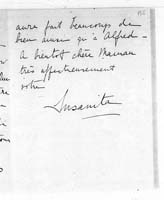 aura fait beaucoup de
bien ainsi qu'à Alfred -
A bientôt chère Maman
très affectueusement
votre
Susanita